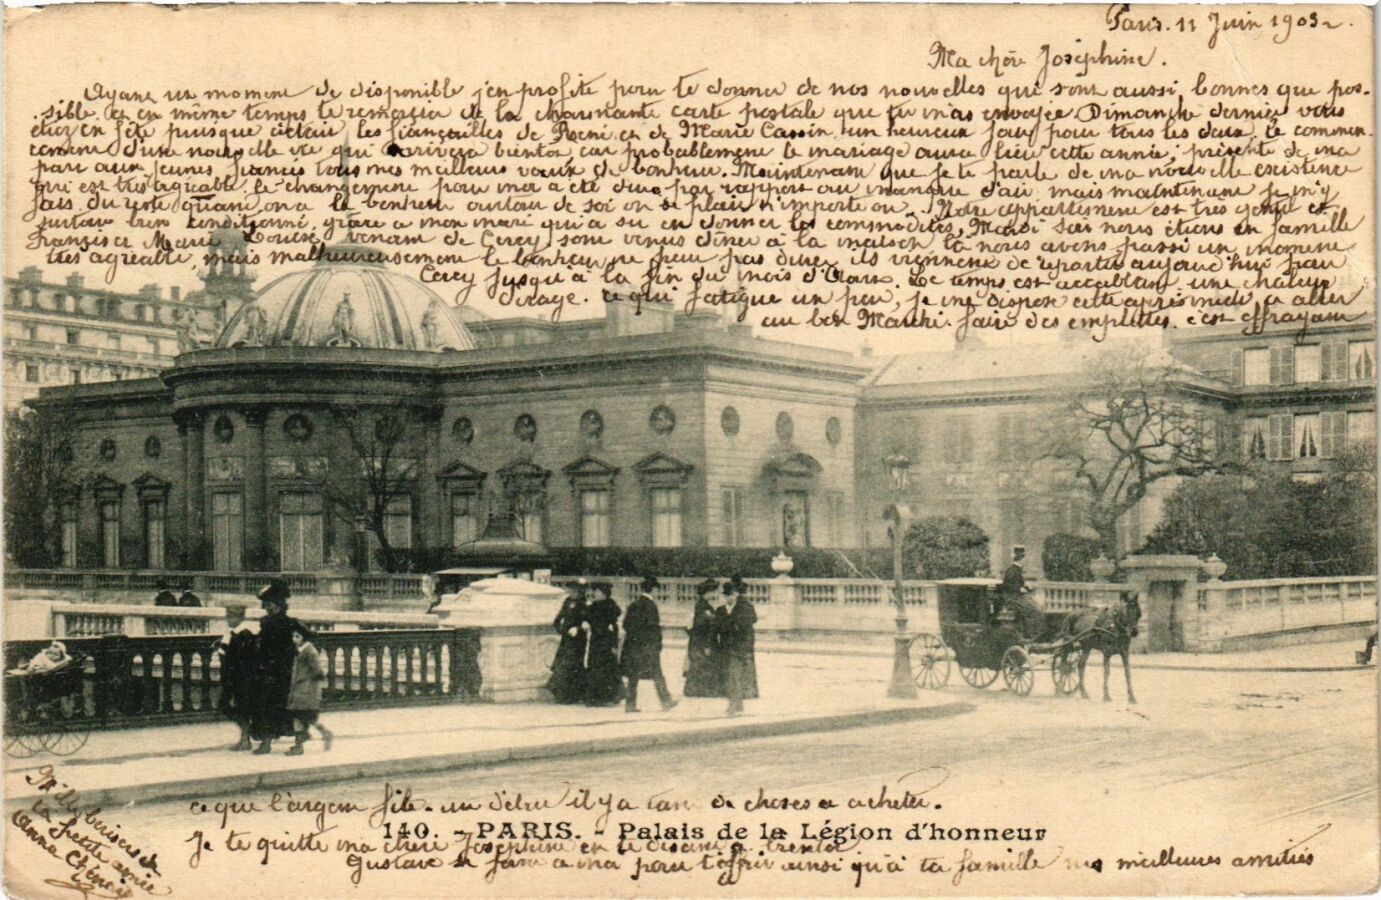 Paris. 11 Juin 1903
Ma chère Joséphine.
Ayant un moment de disponible j'en profite pour te donner de nos nouvelles qui sont aussi bonnes que pos-
sible. et en même temps te remercier de la charmante carte postale que tu m'as envoyée Dimanche dernier vous
étiez en fête puisque c'était les fiançailles de et de Marie Cassin, un heureux jour pour tous les deux, le commen-
cement d'une nouvelle vie qui arrivera bientôt car probablement le mariage aura lieu cette année; présent de ma
part aux jeunes fiancés tous mes meilleurs vœux de bonheur. Maintenant que je te parle de ma nouvelle existence
qui est très agréable, le changement pour moi a été dur, par rapport au manque d'air mais maintenant je m'y
fais du reste quand on a le bonheur autour de soi on se plait n'importe où. Notre appartement est très gentil et
surtout bien conditionné, grâce à mon mari qui a su en donner les commodités, Mardi soir nous étions en famille
Francisca Marie Louise, venant de Cercy sont venus diner à la maison là nous avons passé un moment
très agréable, mais malheureusement le bonheur ne peut pas durer ils viennent de repartir aujourd'hui pour
Cercy jusqu'à la fin du mois d'. Le temps est accablant une chaleur
d'orage. ce qui fatigue un peu, je me dispose cette après midi, à aller
au bon Marché. faire des emplettes. c'est effrayant
ce que l'argent file. un détru il y a tant de choses a acheter.
140. - PARIS. - Palais de la Légion d'honneur
Je te quitte ma chère Joséphine en te disant a
Gustave se joint a moi pour t'offrir ainsi qu'à ta famille nos meilleures amitiés
Mille baisers de
ta petite amie
Anna